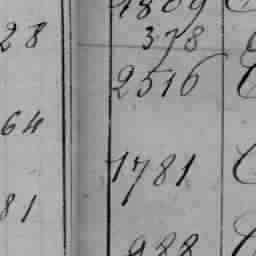 1809
28 378
2516
64
1781
81
988